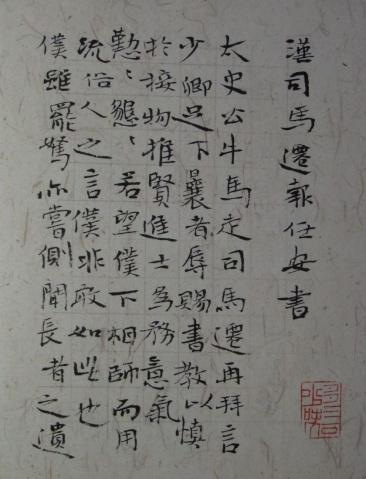 漢司馬遷報任安書
太史公牛馬走司馬遷再拜言
少卿足下曩者辱賜書教以慎
於接物推賢進士為務意氣
懃懃懇懇若望僕不相師而用
流俗人之言僕非敢如此也
僕雖罷駑亦嘗側聞長者之遺